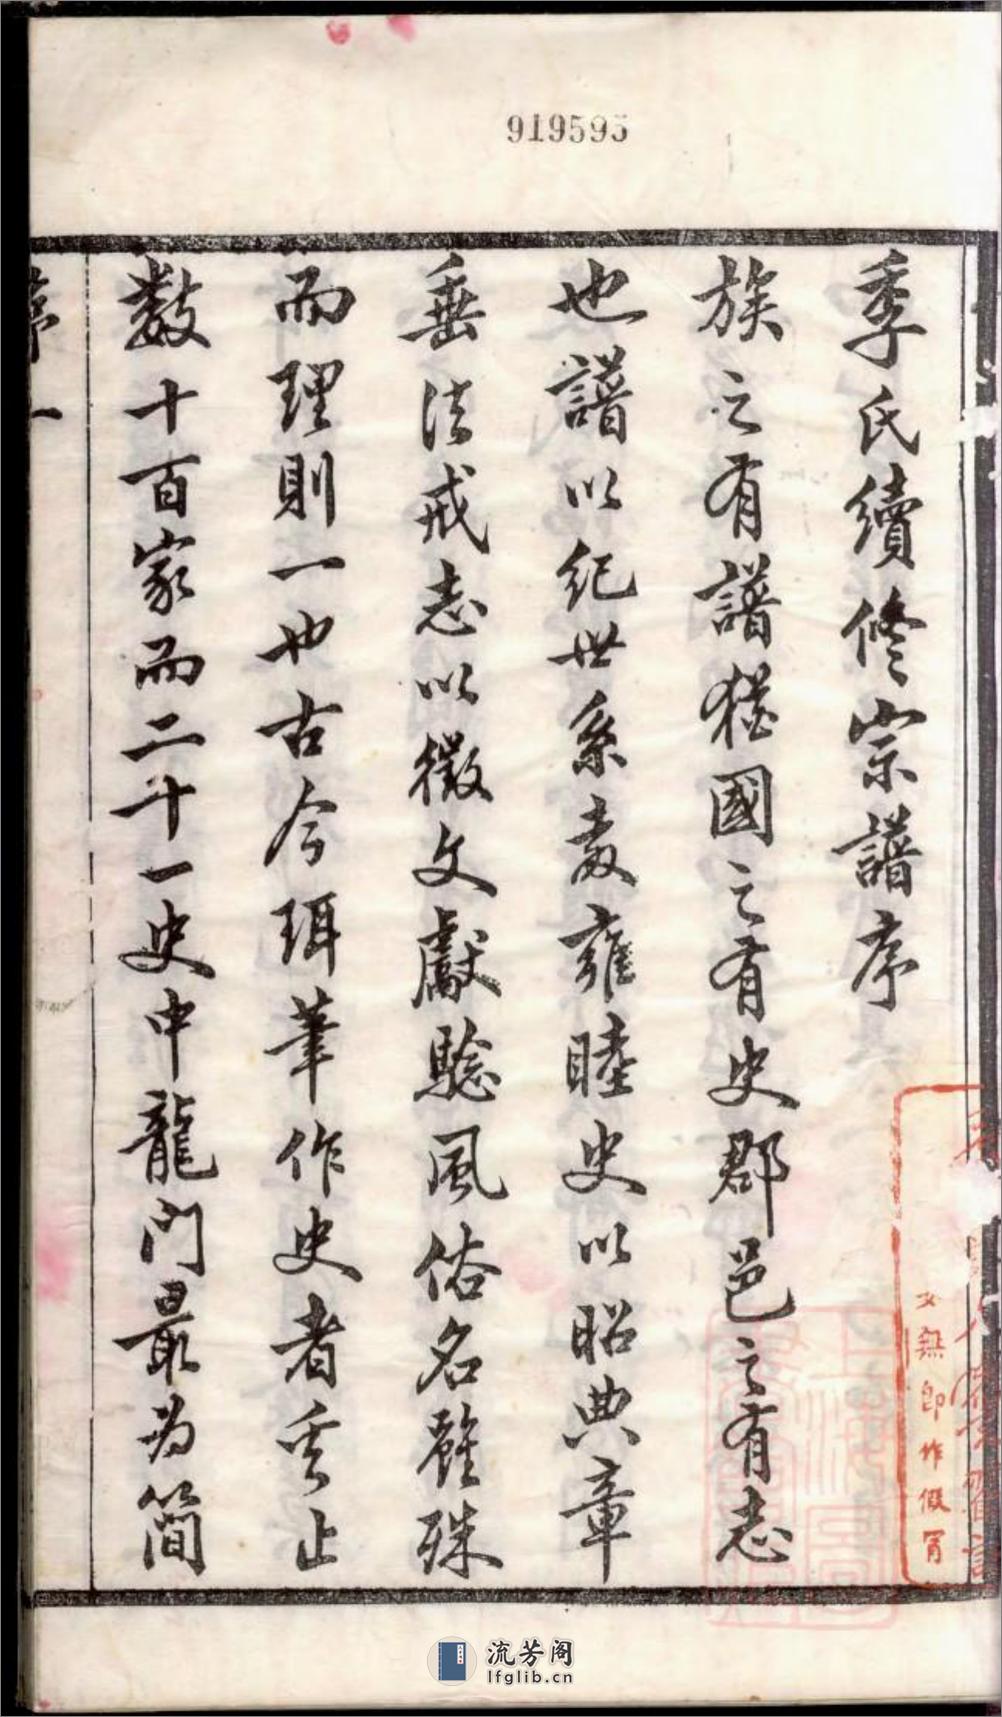 919595
季氏續修宗譜序
族之有譜猶國之有史郡邑之有志
也譜以紀世系敦雍睦史以昭典章
垂法戒志以徵文獻驗風俗名雖殊
而理則一也古今珥筆作史者奚止
數十百家而二十一史中龍門最為簡
序一
無印作假冒
流芳阁
lfglib.cn